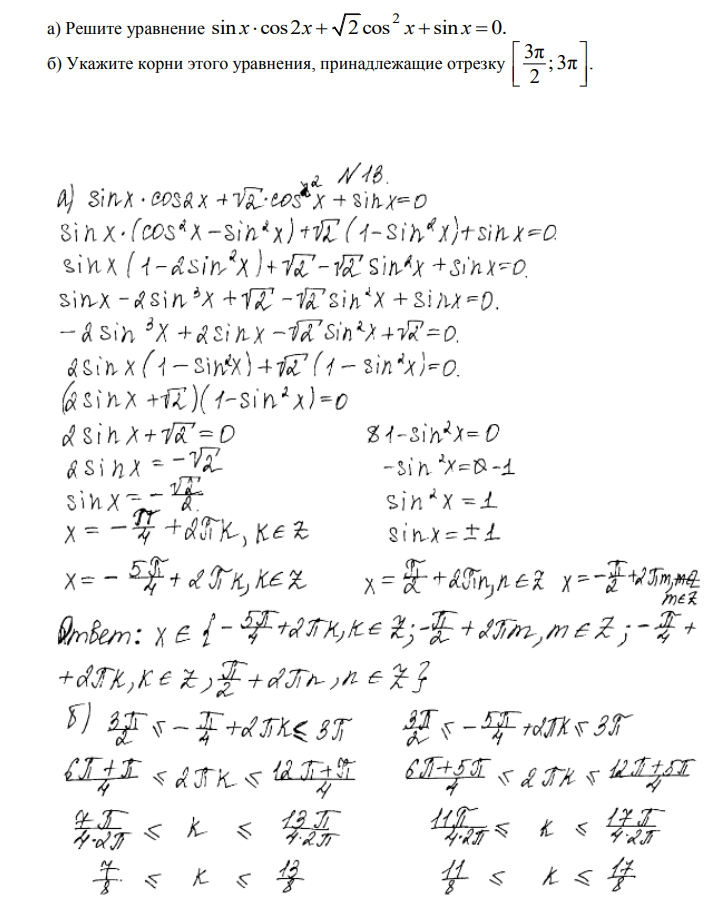 а) Решите уравнение sin x · cos 2x + √2 cos² x + sin x = 0.
б) Укажите корни этого уравнения, принадлежащие отрезку [3π/2; 3π].
N 13.
а) sin x · cos2x + √2 · cos² x + sin x = 0
sin x · (cos²x − sin²x) + √2 (1 − sin²x) + sin x = 0.
sin x (1 − 2sin²x) + √2 − √2 sin²x + sin x = 0.
sin x − 2sin³x + √2 − √2 sin²x + sin x = 0.
−2sin³x + 2sin x − √2 sin²x + √2 = 0.
2sin x (1 − sin²x) + √2 (1 − sin²x) = 0.
(2sin x + √2)(1 − sin²x) = 0
2sin x + √2 = 0 1 − sin²x = 0
2sin x = −√2 −sin²x = −1
sin x = −√2/2. sin²x = 1
x = −π/4 + 2πk, k∈Z sin x = ±1
x = −5π/4 + 2πk, k∈Z x = π/2 + 2πn, n∈Z x = −π/2 + 2πm,
m∈Z
Ответ: x ∈ {−5π/4 + 2πk, k∈Z; −π/2 + 2πm, m∈Z; −π/4 +
+2πk, k∈Z; π/2 + 2πn, n∈Z}
б) 3π/2 ≤ −π/4 + 2πk ≤ 3π 3π/2 ≤ −5π/4 + 2πk ≤ 3π
6π+π/4 ≤ 2πk ≤ 12π+π/4 6π+5π/4 ≤ 2πk ≤ 12π+5π/4
7π/4·2π ≤ k ≤ 13π/4·2π 11π/4·2π ≤ k ≤ 17π/4·2π
7/8 ≤ k ≤ 13/8 11/8 ≤ k ≤ 17/8